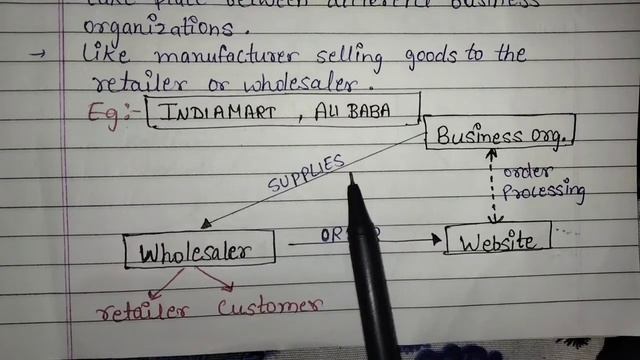 take place between difference business
organizations.
→ Like manufacturer selling goods to the
retailer or wholesaler.
Eg:- INDIAMART , ALI BABA
Business org.
SUPPLIES
order
Processing
Wholesaler
Website
retailer customer